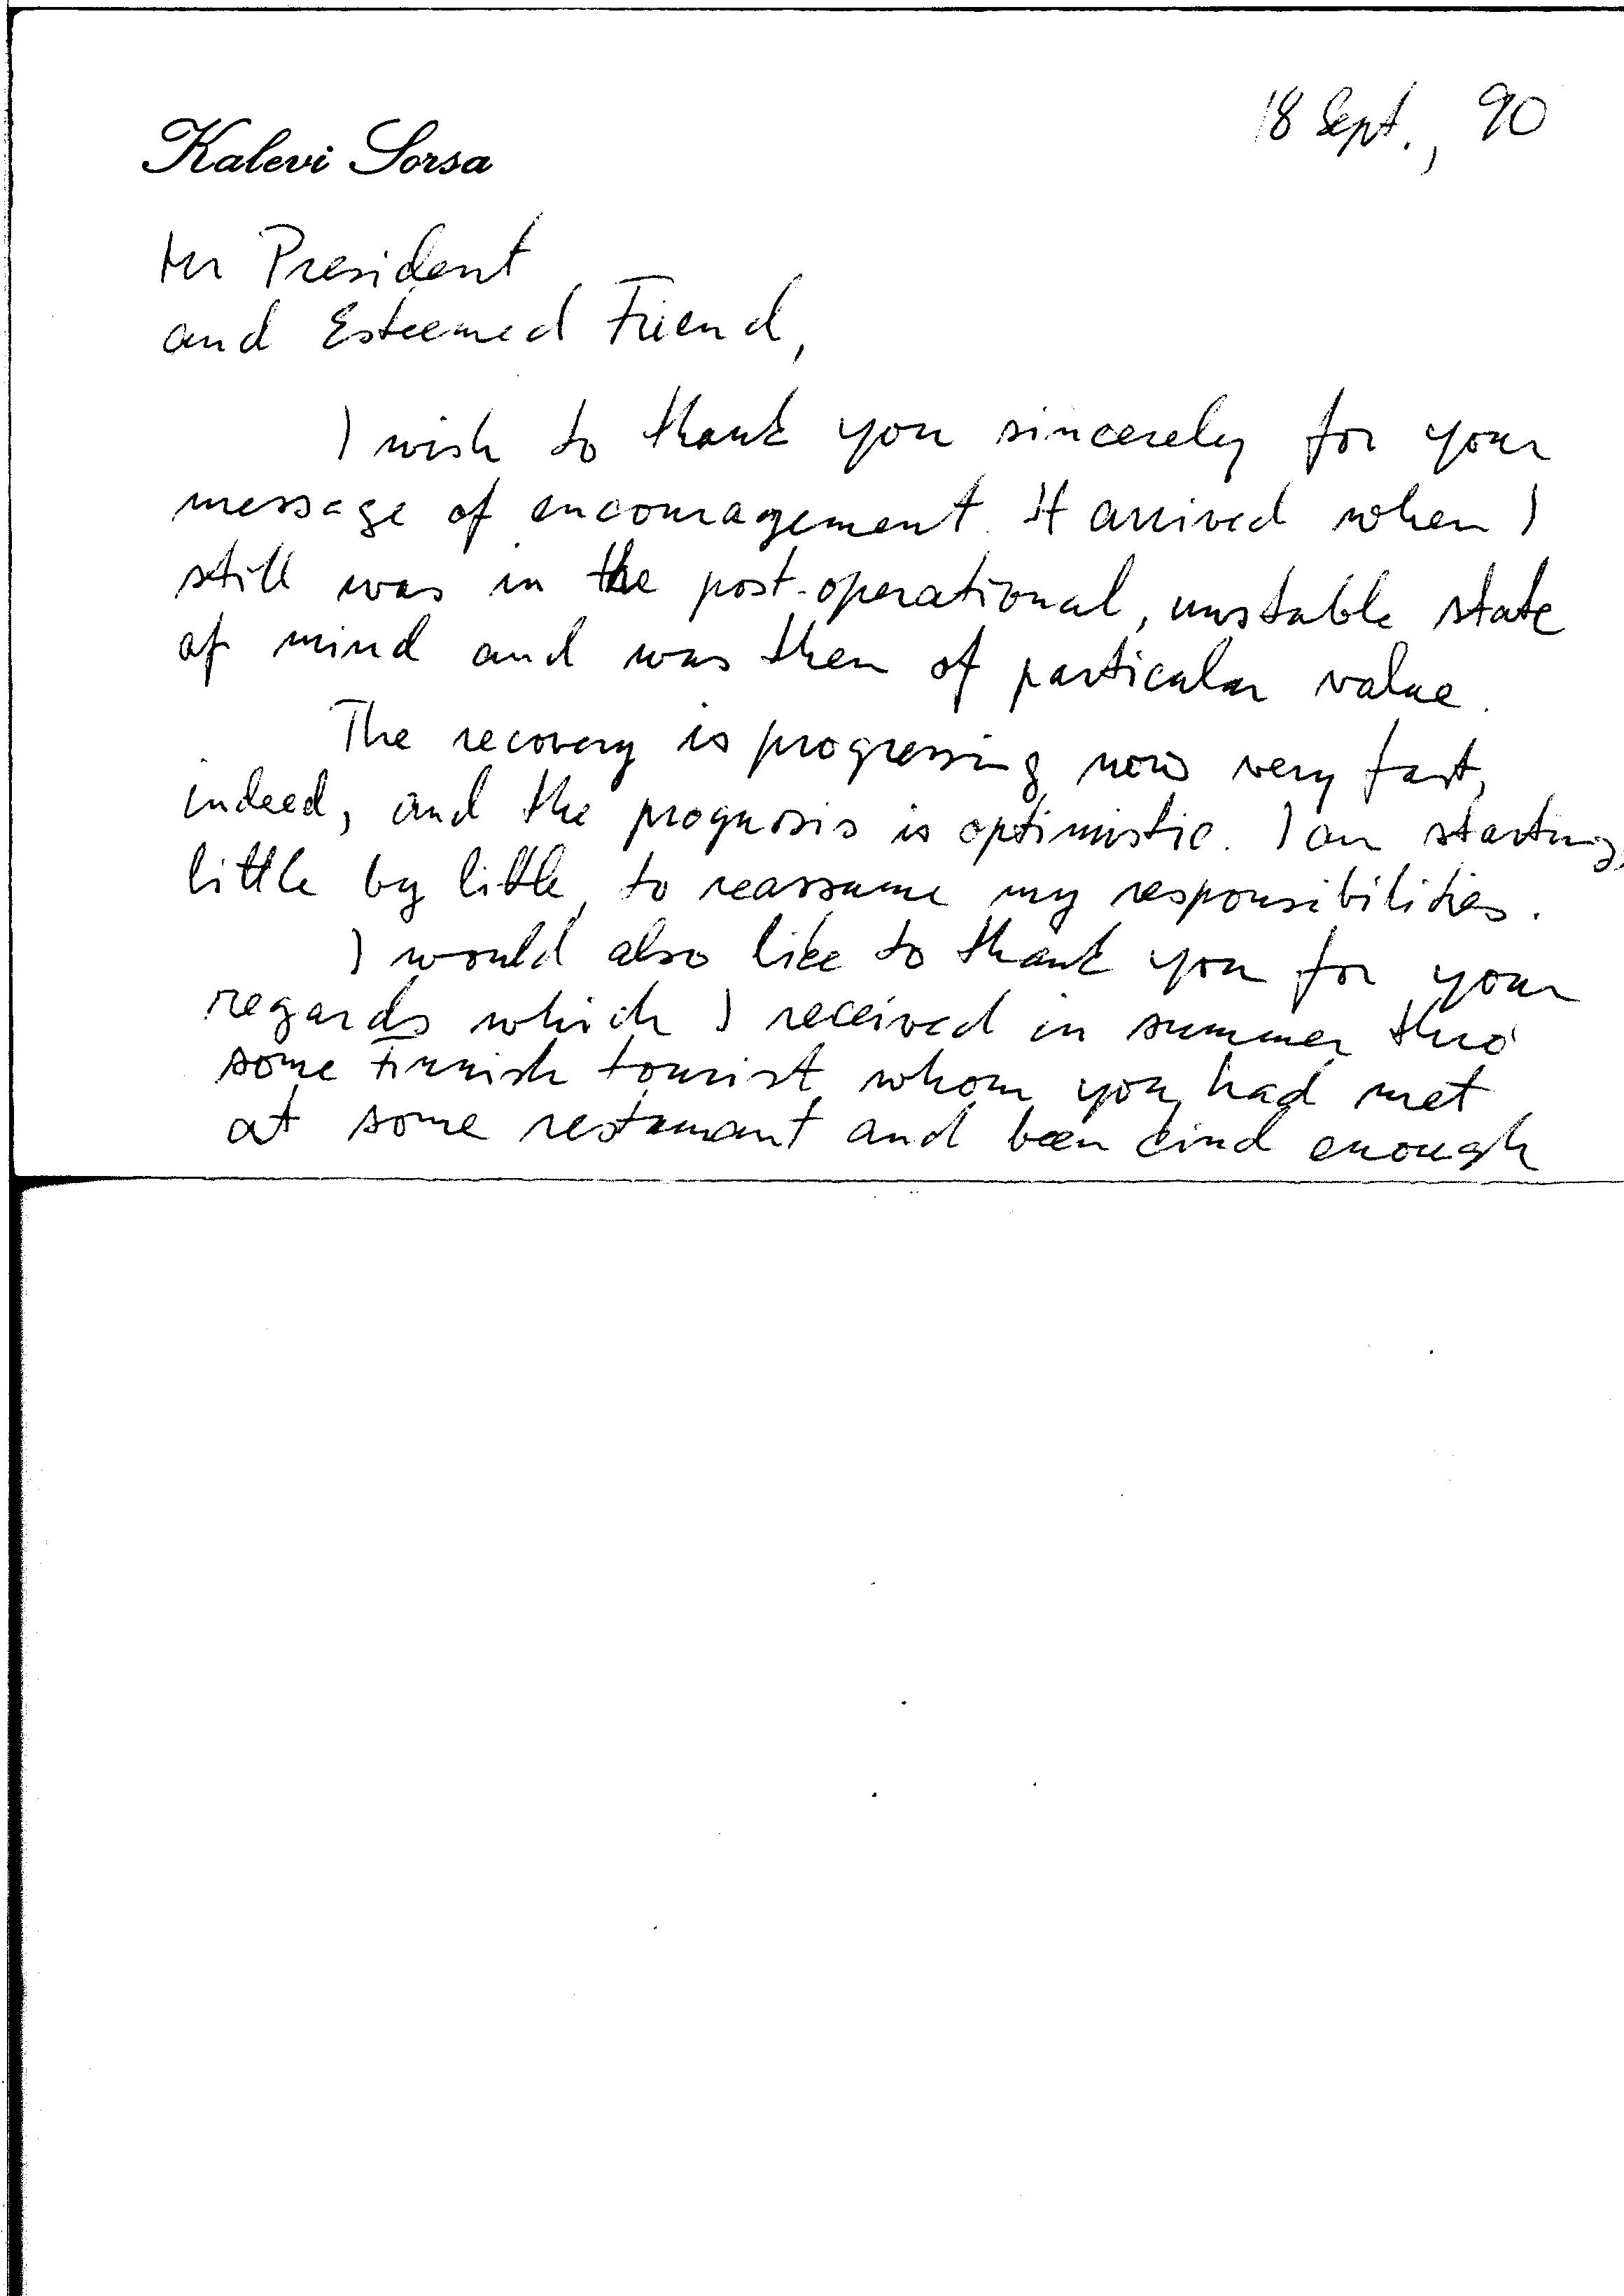 18 Sept., 90
Kalevi Sorsa
Mr President
and Esteemed Friend,
I wish to thank you sincerely for your
message of encouragement. It arrived when I
still was in the post-operational, unstable state
of mind and was then of particular value.
The recovery is progressing now very fast,
indeed, and the prognosis is optimistic. I am starting,
little by little, to reassume my responsibilities.
I would also like to thank you for your
regards which I received in summer thro'
some Finnish tourist whom you had met
at some restaurant and been kind enough